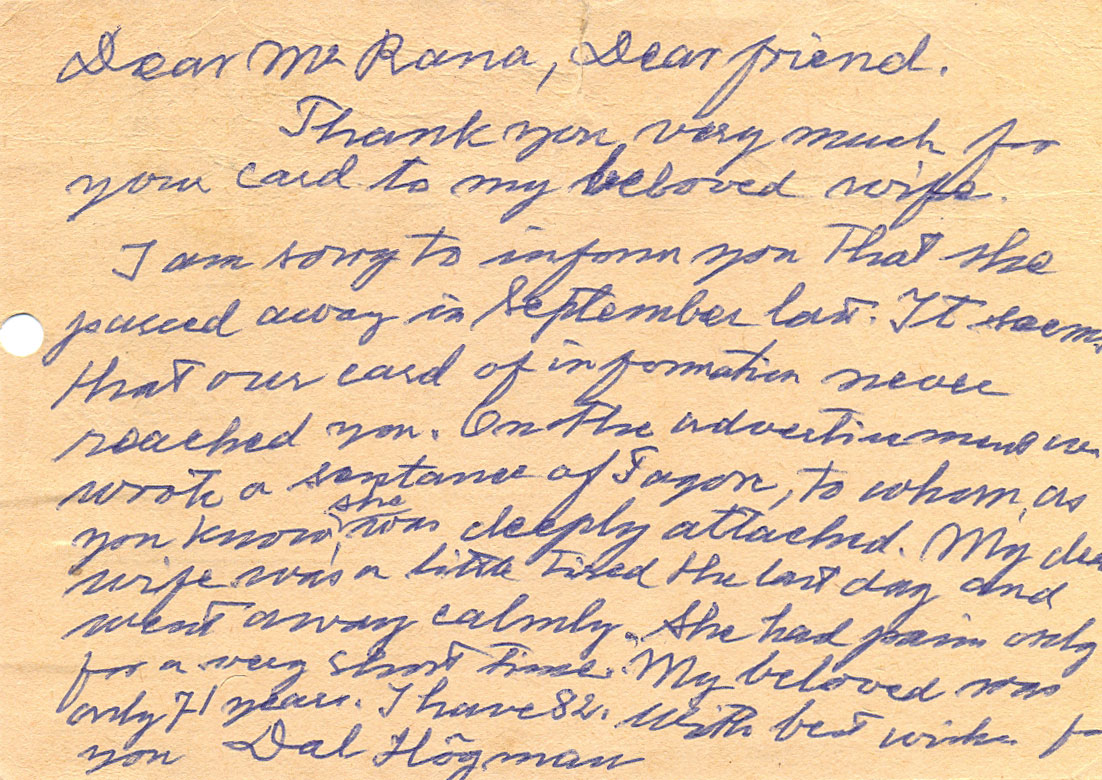 Dear Mr Rana, Dear friend.
Thank you very much for
your card to my beloved wife.
I am sorry to inform you that she
passed away in September last. It seems
that our card of information never
reached you. On the advertisement we
wrote a sentance of Tagore, to whom, as
you know, she was deeply attached. My dea
wife was a little tired the last day and
went away calmly. She had pain only
for a very short time. My beloved was
only 71 years. I have 82. With best wishes fo
you Dal Högman